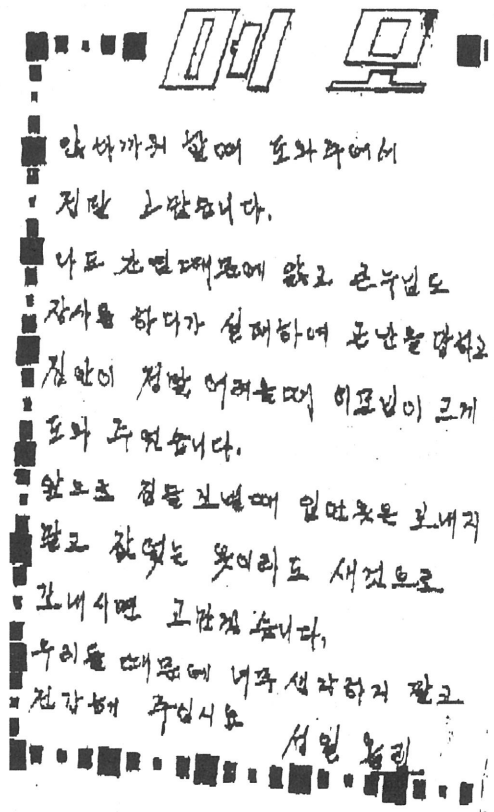 메모
안사까워 할때 도와주어서
정말 고맙습니다.
나도 간염때문에 앓고 큰누님도
장사를 하다가 실패하여 곤난을 당하고
집안이 정말 어려울때 이모님이 크게
도와 주었습니다.
앞으로 짐을 보낼때 입던옷은 보내지
말고 값있는 옷이라도 새것으로
보내시면 고만갔습니다,
우리들 때문에 너무 생각하지 말고
건강해 주십시요
성일 올림